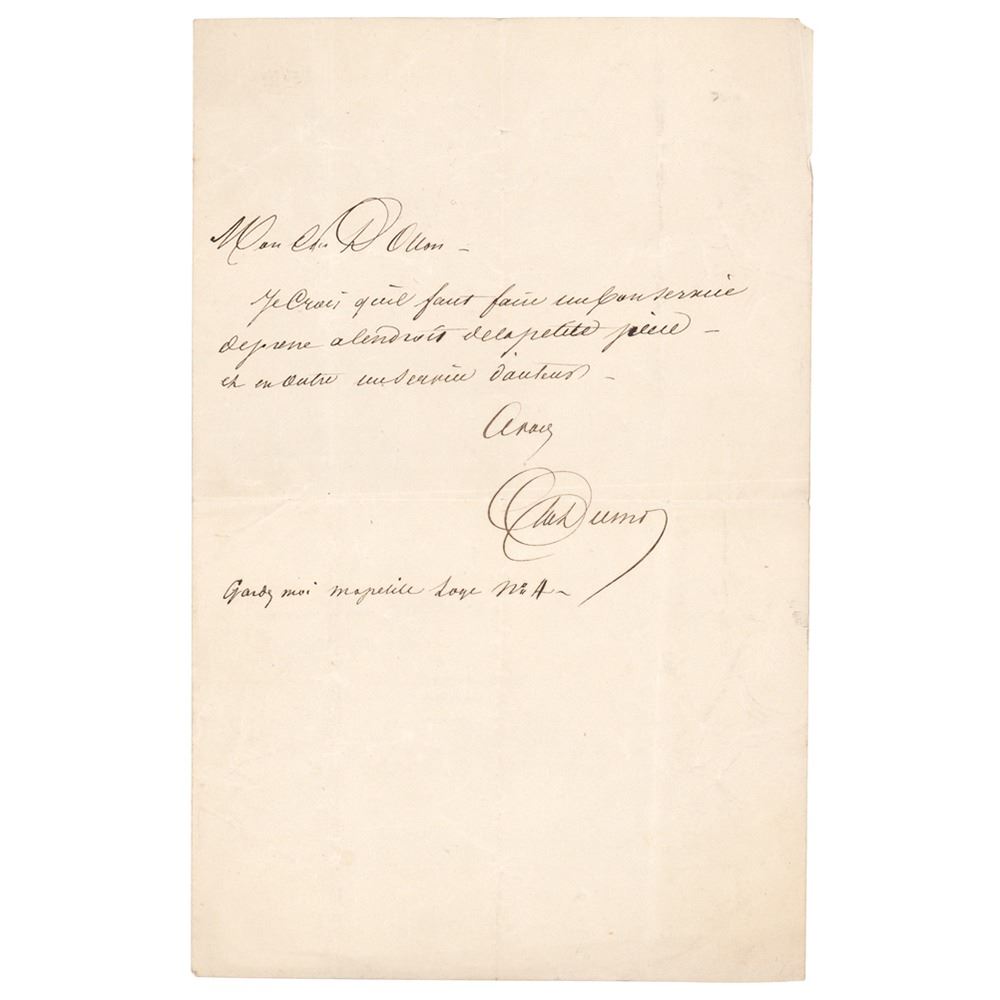 Mon cher D'Ollon –
Je crois qu'il faut faire un bon service
de presse a l'endroit de la petite pièce –
et en outre un service d'auteur –
A vous
Alex Dumas
Gardez moi ma petite loge No 4 –